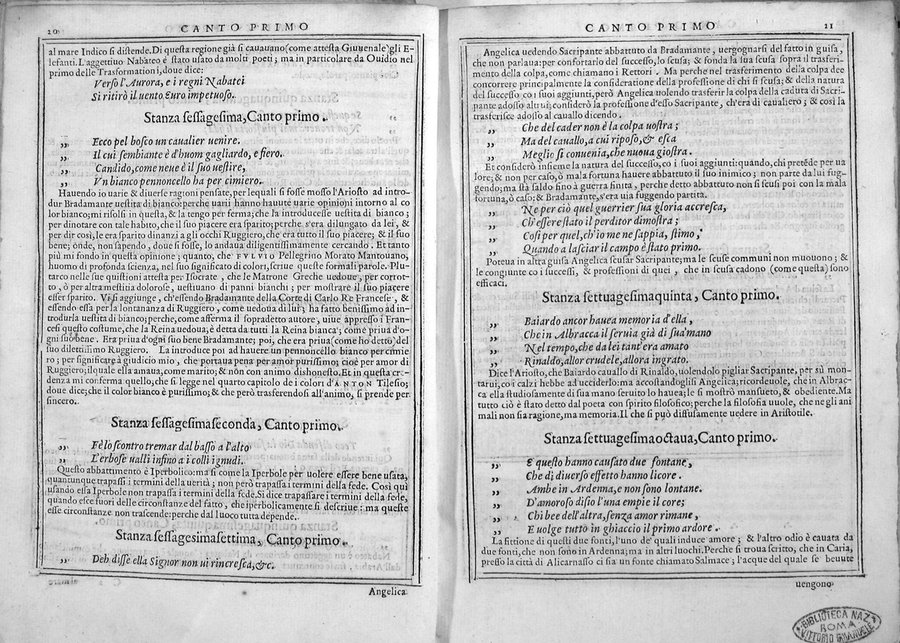 20 CANTO PRIMO
al mare Indico si distende. Di questa regione già si cauauano (come attesta Giuuenale) gli E-
lefanti. L'aggettiuo Nabateo è stato usato da molti poeti; ma in particolare da Ouidio nel
primo delle Trasformationi, doue dice:
Verso l'Aurora, e i regni Nabatei
Si ritirò il uento Euro impetuoso.
Stanza sessagesima, Canto primo.
„ Ecco pel bosco un caualier uenire.
„ Il cui sembiante è d'huom gagliardo, e fiero.
„ Candido, come neue è il suo uestire,
„ Vn bianco pennoncello ha per cimiero.
Hauendo io uarie & diuerse ragioni pensate, per lequali si fosse mosso l'Ariosto ad intro-
dur Bradamante uestita di bianco: perche uarii hanno hauute uarie opinioni intorno al co
lor bianco; mi risolsi in questa, & la tengo per ferma; che la introducesse uestita di bianco;
per dinotare con tale habito, che il suo piacere era sparito; perche s'era dilungato da lei, &
per dir così, le era sparito dinanzi a gli occhi Ruggiero, che era tutto il suo piacere; & il suo
bene; onde, non sapendo, doue si fosse, lo andaua diligentissimamente cercando. Et tanto
più mi fondo in questa opinione; quanto, che FVLVIO Pellegrino Morato Mantouano,
huomo di profonda scienza, nel suo significato di colori, scriue queste formali parole. Plu-
tarco nelle sue quistioni attesta per Isocrate, che le Matrone Greche uedoue, per corrot-
to, ò per altra mestitia dolorose, uestiuano di panni bianchi; per mostrare il suo piacere
esser sparito. Vi si aggiunge, ch'essendo Bradamante della Corte di Carlo Re Francese, &
essendo essa per la lontananza di Ruggiero, come uedoua di lui; ha fatto benissimo ad in-
trodurla uestita di bianco; perche, come afferma il sopradetto autore, uiue appresso i Fran-
cesi questo costume, che la Reina uedoua, è detta da tutti la Reina bianca; come priua d'o-
gni suo bene. Era priua d'ogni suo bene Bradamante; poi, che era priua (come ho detto) del
suo dilettissimo Ruggiero. La introduce poi ad hauere un pennoncello bianco per cimie
ro; per significare à giudicio mio, che portaua pena per amor purissimo; cioè per amor di
Ruggiero; ilquale ella anaua, come marito; & nõn con animo dishonesto. Et in questa cre-
denza mi conferma quello, che si legge nel quarto capitolo de i colori d'ANTON Tilesio;
doue dice; che il color bianco è purissimo; & che però trasferendosi all'animo, si prende per
sincero.
Stanza sessagesimaseconda, Canto primo.
„ Fè lo scontro tremar dal basso a l'alto
„ L'erbose ualli infino a i colli ignudi.
Questo abbattimento è Iperbolico: ma sì come la Iperbole per uolere essere bene usata,
quantunque trapassi i termini della uerità; non però trapassa i termini della fede. Così qui
usando essa Iperbole non trapassa i termini della fede. Si dice trapassare i termini della fede,
quando esce fuori delle circonstanze del fatto, che iperbolicamente si descriue: ma queste
esse circonstanze non trascende: perche dal luoco tutta depende.
Stanza sessagesimasettima, Canto primo.
„ Deh disse ella Signor non ui rincresca, &c.
Angelica
CANTO PRIMO 21
Angelica uedendo Sacripante abbattuto da Bradamante, uergognarsi del fatto in guisa,
che non parlaua: per confortarlo del successo, lo scusa; & fonda la sua scusa sopra il trasferi-
mento della colpa, come chiamano i Rettori. Ma perche nel trasferimento della colpa dee
concorrere principalmente la consideratione della professione di chi si scusa; & della natura
del successo co i suoi aggiunti, però Angelica uolendo trasferir la colpa della caduta di Sacri-
pante adosso altrui; considerò la professione d'esso Sacripante, ch'era di caualiero; & così la
trasferisce adosso al cauallo dicendo.
„ Che del cader non è la colpa uostra;
„ Ma del cauallo, a cui riposo, & esca
„ Meglio si conuenia, che nuoua giostra.
Et considerò insieme la natura del successo, co i suoi aggiunti: quando, chi pretẽde per ua
lore; & non per caso, ò mala fortuna hauere abbattuto il suo inimico; non parte da lui fug-
gendo; ma stà saldo fino à guerra finita, perche detto abbattuto non si scusi poi con la mala
fortuna, ò caso; & Bradamante, s'era uia fuggendo partita.
„ Ne per ciò quel guerrier sua gloria accresca,
„ Ch'essere stato il perditor dimostra;
„ Così per quel, ch'io me ne sappia, stimo,
„ Quando a lasciar il campo è stato primo.
Poteua in altra guisa Angelica scusar Sacripante; ma le scuse communi non muouono; &
le congiunte co i successi, & professioni di quei, che in scusa cadono (come questa) sono
efficaci.
Stanza settuagesimaquinta, Canto primo.
„ Baiardo ancor hauea memoria d'ella,
„ Che in Albracca il seruia già di sua mano
„ Nel tempo, che da lei tant'era amato
„ Rinaldo, allor crudele, allora ingrato.
Dice l'Ariosto, che Baiardo cauallo di Rinaldo, uolendolo pigliar Sacripante, per sù mon-
tarui, co i calzi hebbe ad ucciderlo: ma accostandoglisi Angelica; ricordeuole, che in Albrac-
ca ella studiosamente di sua mano seruito lo hauea; le si mostrò mansueto, & obediente. Ma
tutto ciò è stato detto dal poeta con spirito filosofico; perche la filosofia uuole, che ne gli ani
mali non sia ragione, ma memoria. Il che si può diffusamente uedere in Aristotile.
Stanza settuagesimaottaua, Canto primo.
„ E questo hanno causato due fontane,
„ Che di diuerso effetto hanno licore.
„ Ambe in Ardenna, e non sono lontane.
„ D'amoroso disio l'una empie il core;
„ Chi bee dell'altra, senza amor rimane,
„ E uolge tutto in ghiaccio il primo ardore.
La fittione di questi due fonti, l'uno de' quali induce amore; & l'altro odio è cauata da
due fonti, che non sono in Ardenna; ma in altri luochi. Perche si troua scritto, che in Caria,
presso la città di Alicarnasso ci sia un fonte chiamato Salmace; l'acque del quale se beuute
uengono
BIBLIOTECA NAZ.
ROMA
VITTORIO EMANUELE